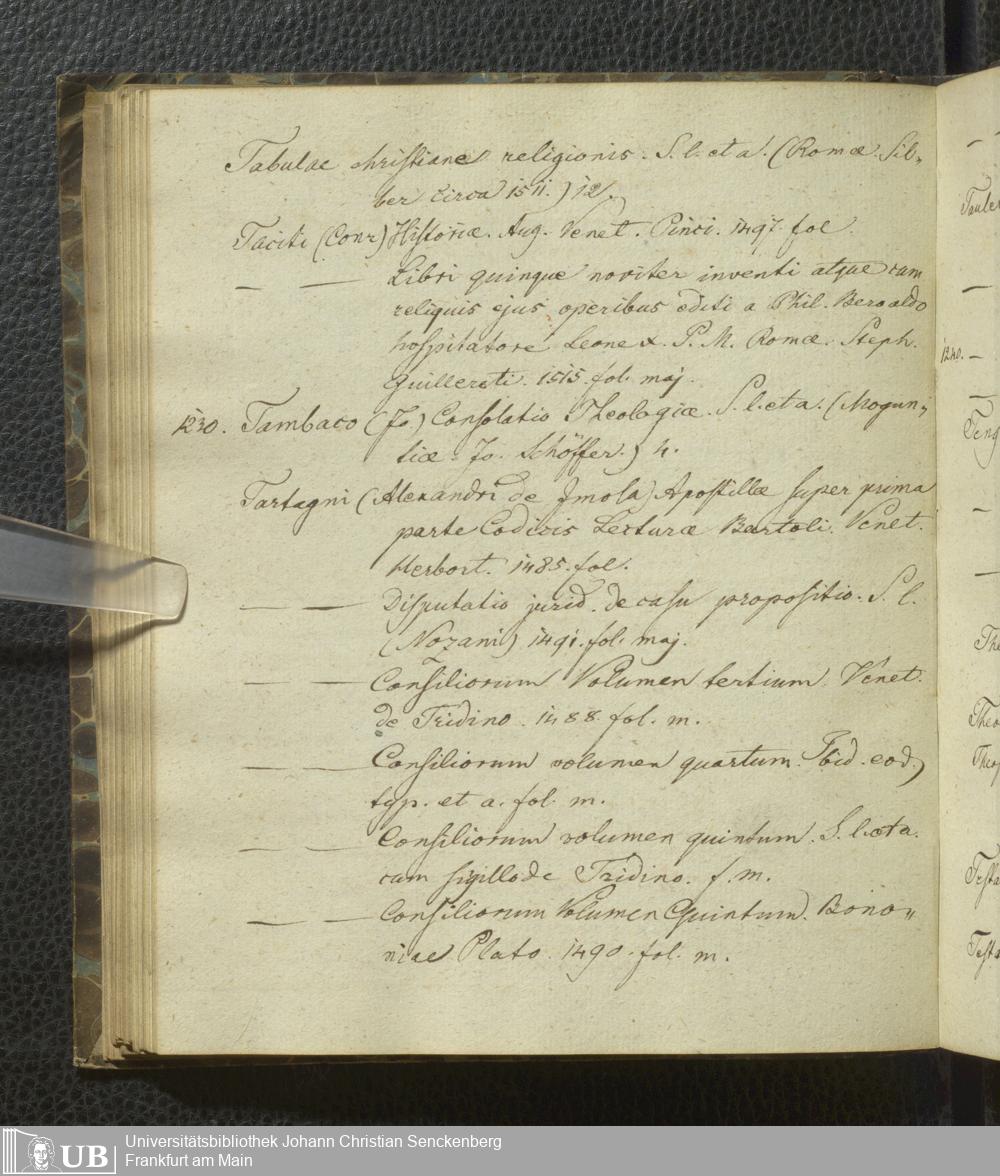 Tabulae christiane religionis. S. l. et a. (Romæ. Sil„
ber circa 1511.) 12.
Taciti (Corn) Historiæ. Aug. Venet. Pinci. 1497. fol.
— — Libri quinque noviter inventi atque cum
reliquis ejus operibus editi a Phil. Beroaldo
hospitatore Leone X. P. M. Romæ. Steph.
Guillereti. 1515. fol. maj.
1230. Tambaco (Jo) Consolatio Theologiæ. S. l. et a. (Mogun„
tiæ. Jo. Schöffer.) 4.
Tartagni (Alexandri de Imola) Apostillæ super prima
parte Codicis Lecturæ Bartoli. Venet.
Herbort. 1485. fol.
— — Disputatio jurid. de casu propositio. S. l.
(Nozani) 1491. fol. maj.
— — Consiliorum Volumen tertium. Venet.
de Tridino. 1488. fol. m.
— — Consiliorum volumen quartum. Ibid. eod.
typ. et a. fol. m.
— — Consiliorum volumen quintum. S. l. et a.
cum sigillo de Tridino. f. m.
— — Consiliorum Volumen Quintum. Bono„
niae Plato. 1490. fol. m.
1240.
UB
Universitätsbibliothek Johann Christian Senckenberg
Frankfurt am Main